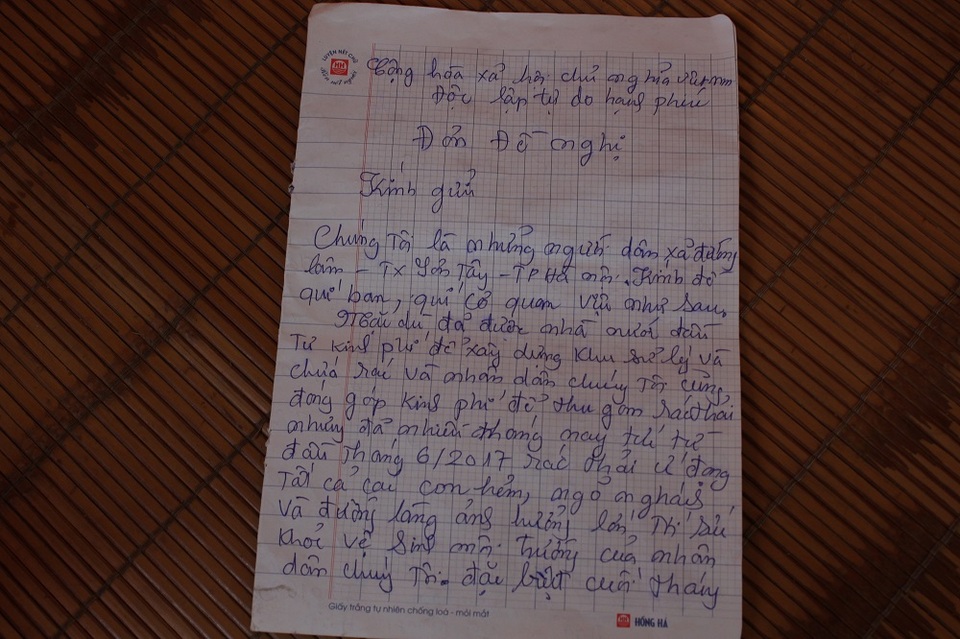 LUYỆN NÉT CHỮ
HH
RÈN NẾT NGƯỜI
Cộng hòa xả hội chủ nghĩa việt nam
Độc lập tự do hạnh phúc
Đơn Đề nghị
Kính gửi
Chúng Tôi là những người dân xả đường
lâm - TX Sơn Tây - TP Hà nội. Kính đề
quí ban, quí cơ quan việc như sau,
Mặc dù đả được nhà nước đầu
Tư kinh phí để xây dựng khu sử lý và
chứa rác và nhân dân chúng Tôi cũng
đóng góp kinh phí để thu gom rác thải
nhưng đả nhiều tháng nay từ
đầu Tháng 6/2017 rác thải ứ đọng
Tất cả các con hẻm, ngỏ nghách
và đường làng ảnh hưởng lớn Tới sức
khỏe vệ sinh môi trường của nhân
dân chúng Tôi. đặc biệt cuối tháng
Giấy trắng tự nhiên chống loá - mỏi mắt
HH HỒNG HÀ